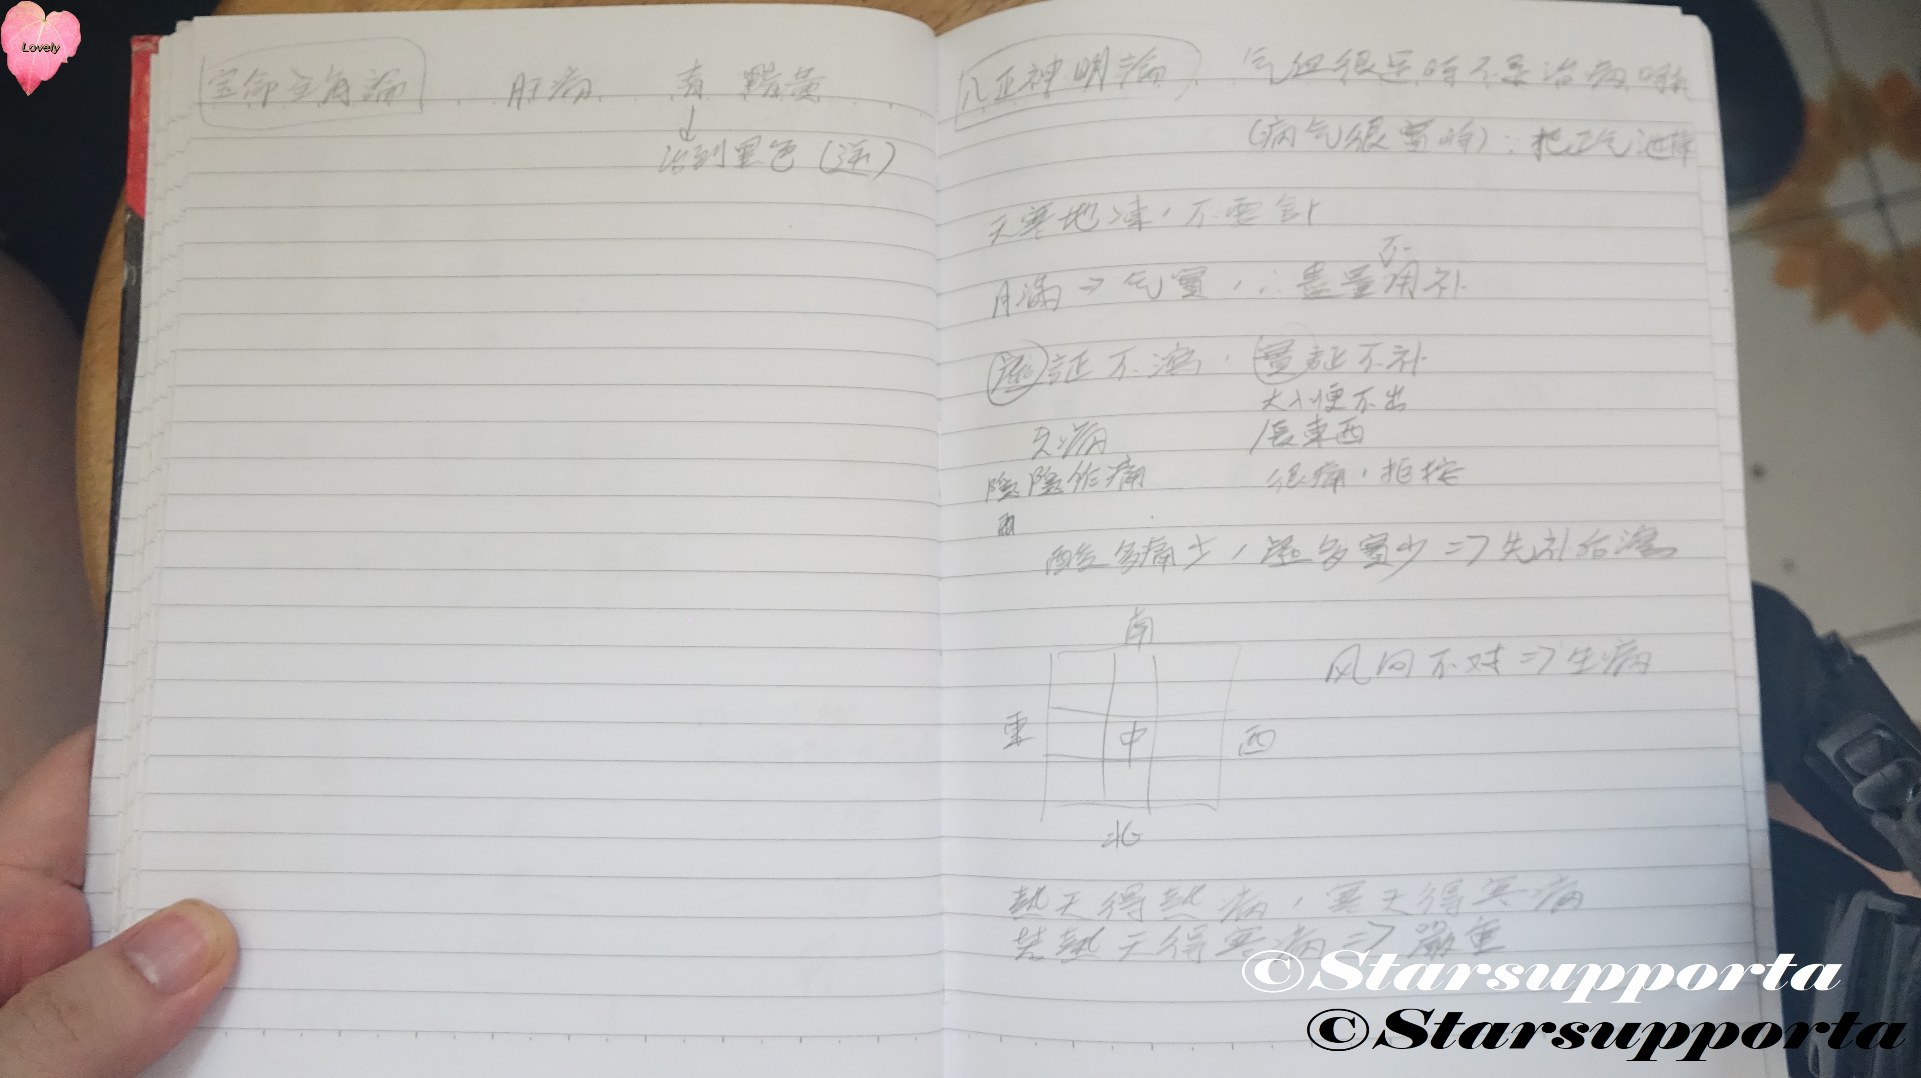 Lovely
宝命全角論 肝病 青 黯黃
↓
治到黑色(逆)
八正神明論 气血很足時不是治病時机
(病气很實時)∴把正气追
天寒地凍,不要針
不
月滿⇒气實,∴盡量用补
虛証不瀉,實証不补
大小便不出
久病 長東西
隱隱作痛 很痛,拒按
酸多痛少,虛多實少⇒先补后瀉
南
风向不对⇒生病
東 中 西
北
熱天得熱病,寒天得寒病
若熱天得寒病⇒嚴重
©Starsupporta
©Starsupporta